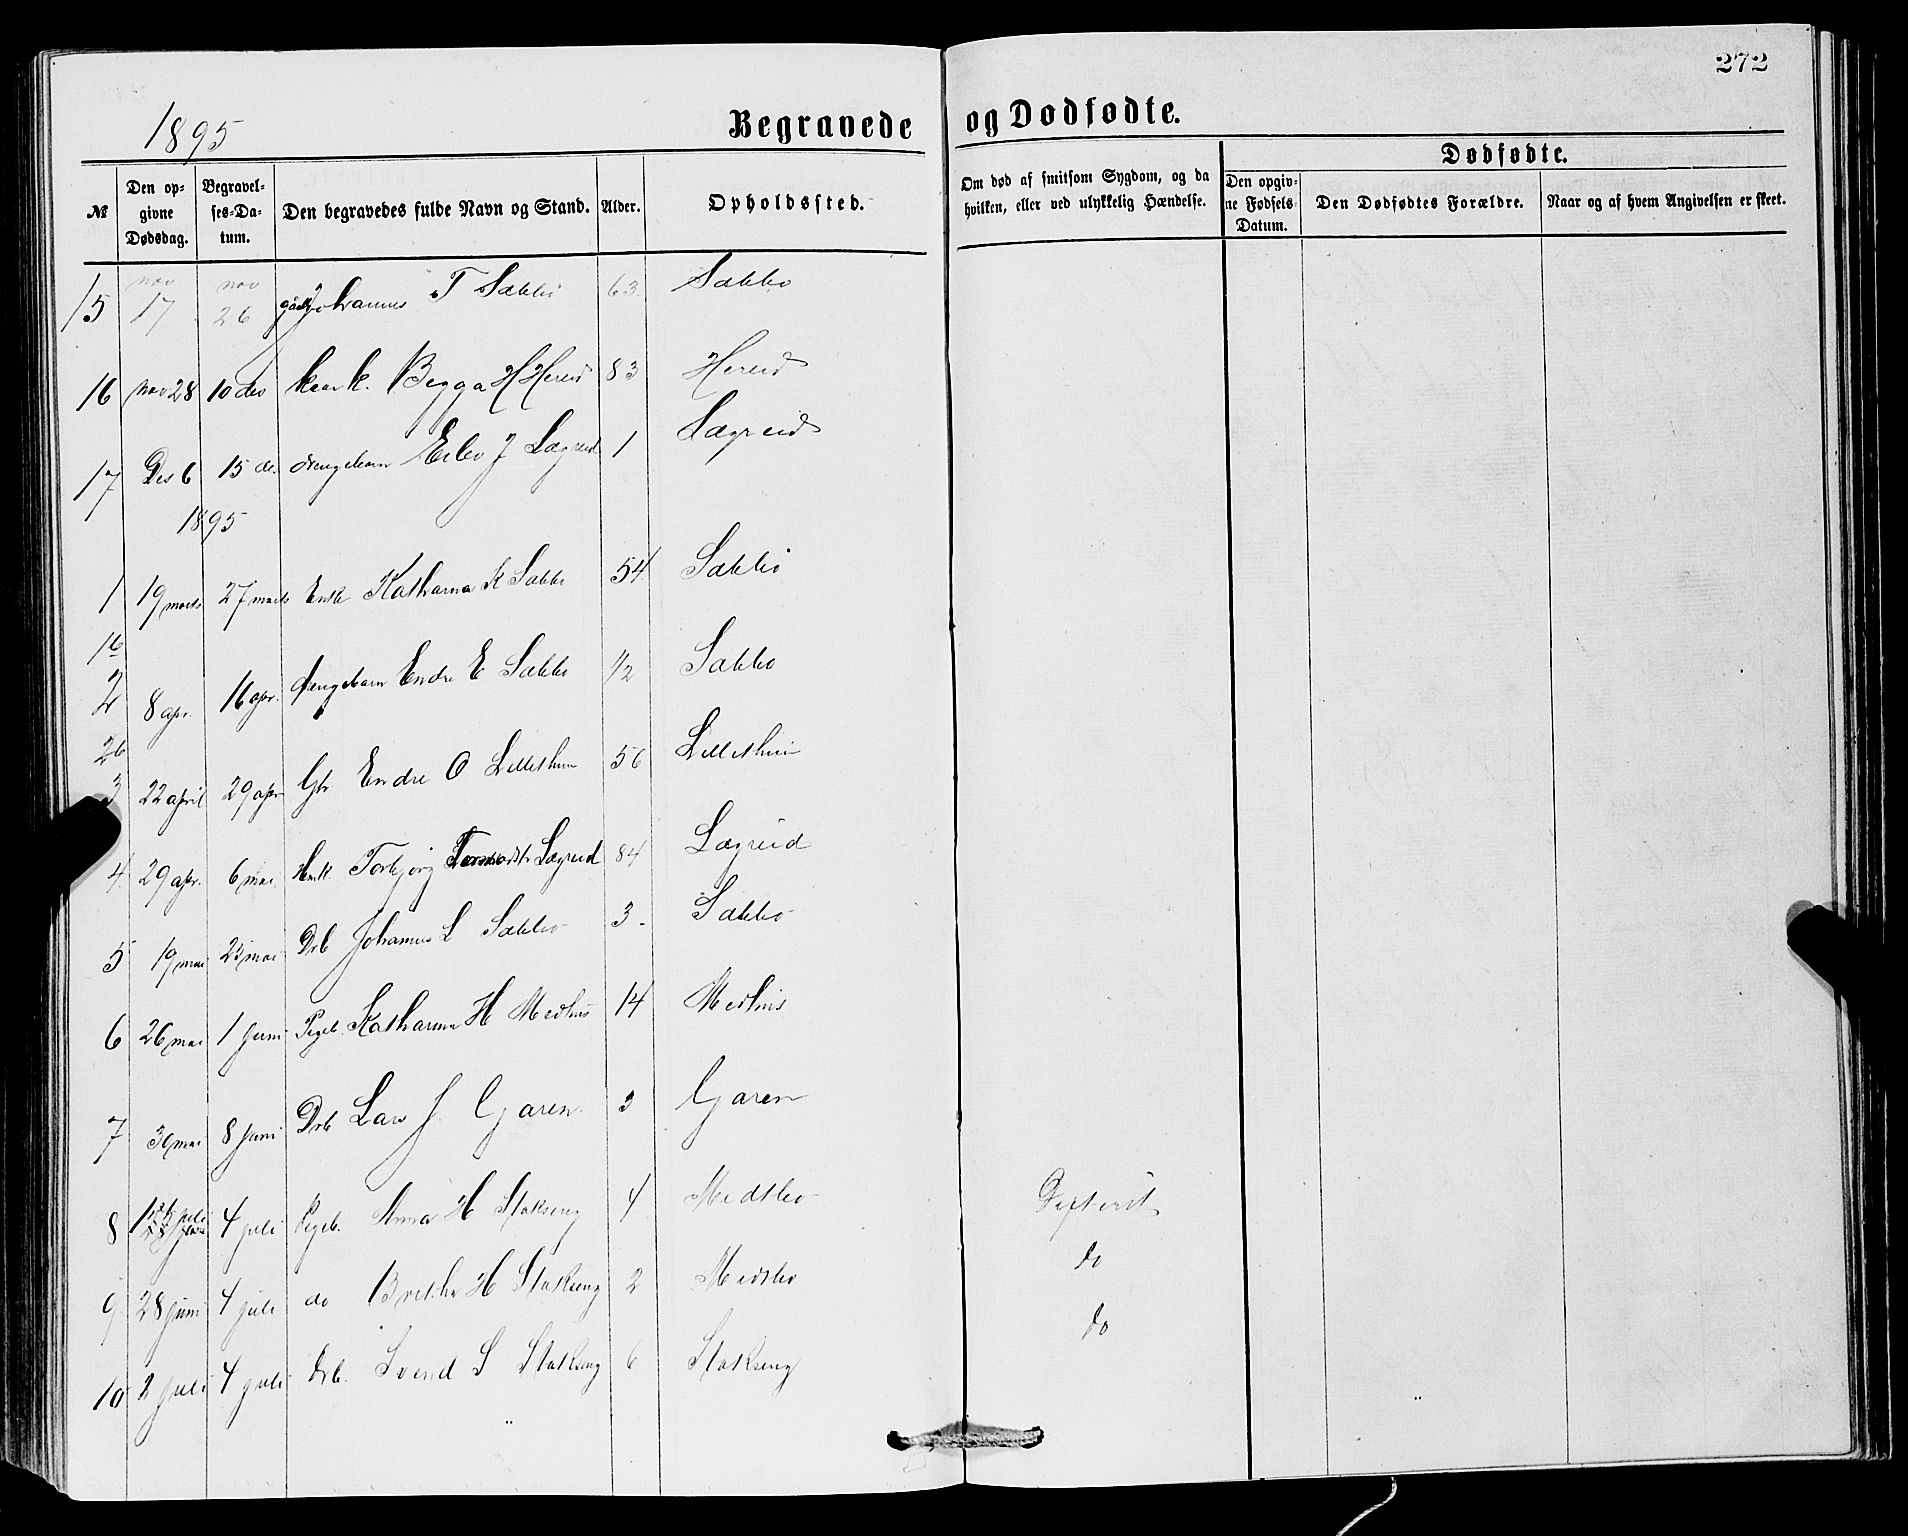 272
1895
Begravede og Dødfødte.
№
Den opgivne Dødsdag.
Begravelses-Datum.
Den begravedes fulde Navn og Stand.
Alder.
Opholdssted.
Om død af smitsom Sygdom, og da hvilken, eller ved ulykkelig Hændelse.
Dødfødte.
Den opgivne Fødsels-Datum.
Den Dødfødtes Forældre.
Naar og af hvem Angivelsen er skeet.
15 nov 17 nov 26 Johannes T Sæbbø 63 Sæbbø
16 nov 28 10 des Begga H Hereid 83 Hereid
17 Des 6 15 de. drengebarn J Lægreid 1 Lægreid
1895
1 19 marts 27 marts Enke Katharina K Sæbbø 54 Sæbbø
16
2 8 apr. 16 apr. drengebarn Endre E Sæbbø 1/2 Sæbbø
26
3 22 april 29 apr Gbr Endre O Lillethun 56 Lillethun
4 29 apr. 6 mai Torbjørg Lægreid 84 Lægreid
5 19 mai 23 mai Drb Johannes L Sæbbø 3 Sæbbø
6 26 mai 1 juni Pigeb. Katharina H Medhus 14 Medhus
7 30 mai 8 juni Drb Lars J. Garen 3 Garen
8 juli 4 juli Pigeb. Anna H Stokseng 4 Medtbø Difterit
9 28 juni 4 juli do Brithe H Stokseng 2 Medtbø do
10 2 juli 4 juli Drb. Svend S Stokseng 6 Stokseng do